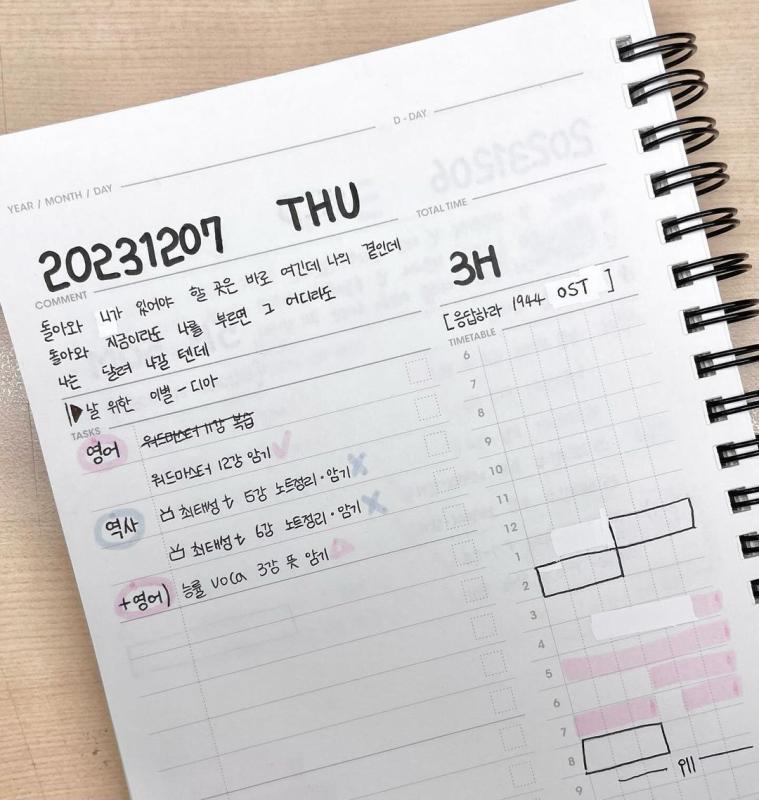 D-DAY
YEAR / MONTH / DAY
20231207 THU
TOTAL TIME
3H
COMMENT
돌아와 니가 있어야 할 곳은 바로 여긴데 나의 곁인데
돌아와 지금이라도 나를 부르면 그 어디라도
나는 달려 나갈 텐데
▶날 위한 이별 - 디아
[응답하라 1944 OST ]
TIMETABLE
TASKS
영어 워드마스터 11강 복습
워드마스터 12강 암기
역사 최태성 t 5강 노트정리·암기 X
최태성 t 6강 노트정리·암기 X
+영어) 능률 voca 3강 뜻 암기
6
7
8
9
10
11
12
1
2
3
4
5
6
7
8
9